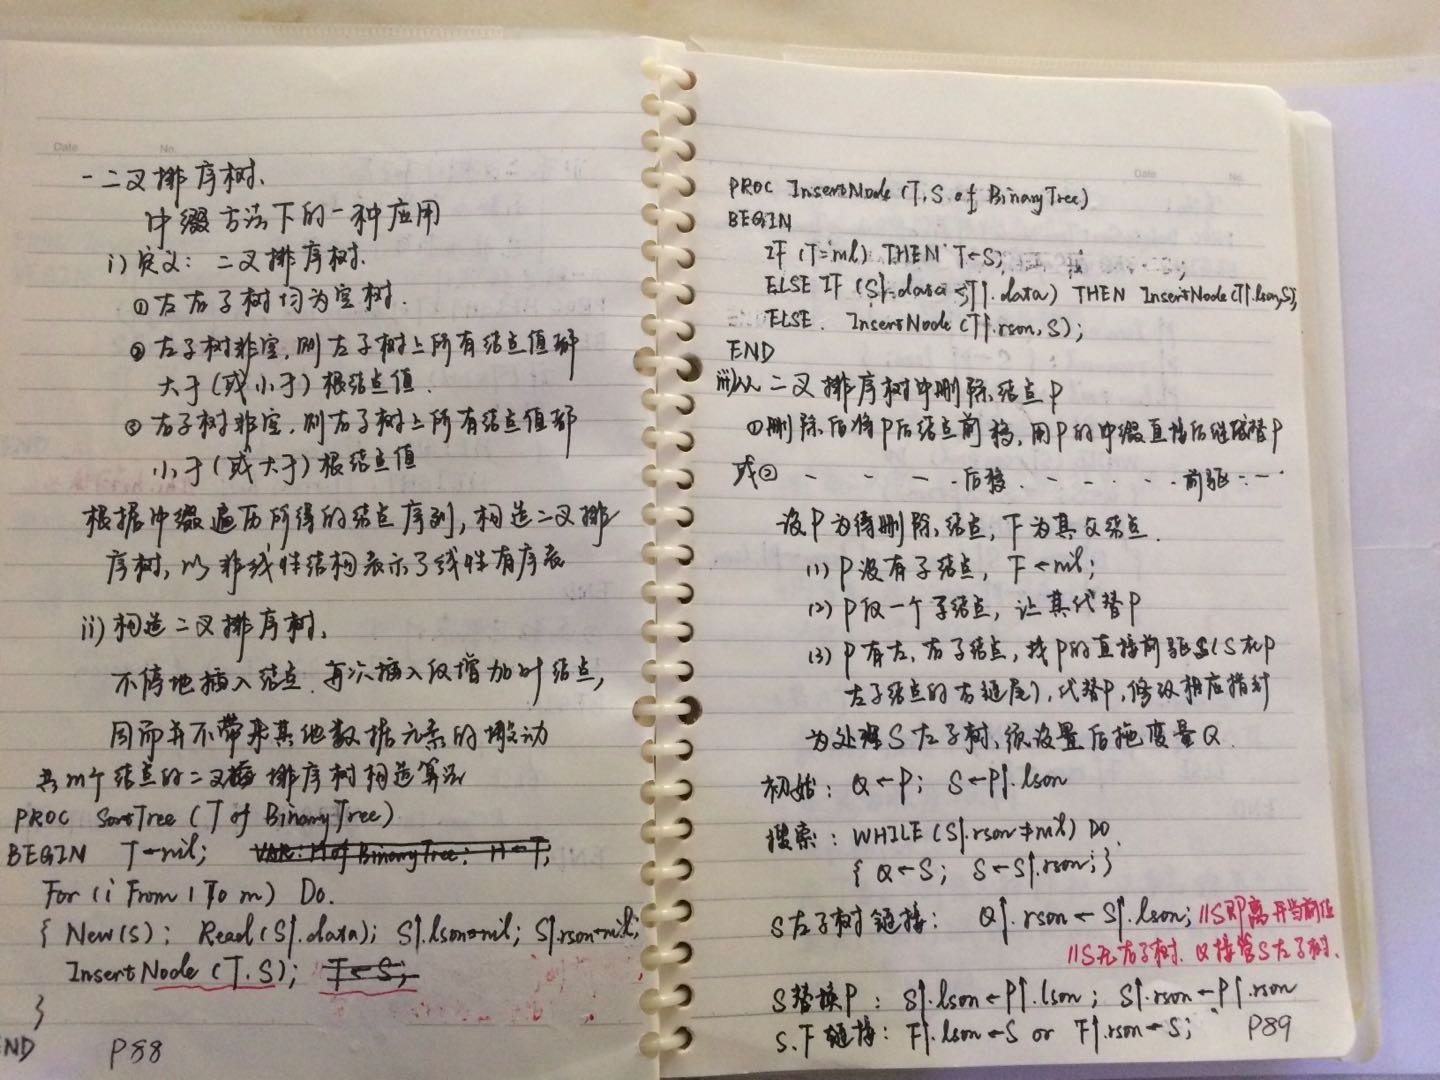 Date No.
- 二叉排序树、
中缀方法下的一种应用
i) 定义: 二叉排序树.
① 左右子树均为空树.
② 左子树非空,则左子树上所有结点值都
大于(或小于)根结点值.
③ 右子树非空,则右子树上所有结点值都
小于(或大于)根结点值
根据中缀遍历所得的结点序列,构造二叉排
序树,以非线性结构表示了线性有序表
ii) 构造二叉排序树、
不停地插入结点.每次插入仅增加叶结点,
因而并不带来其他数据元素的挪动
共m个结点的二叉排序树构造算法
PROC SortTree (T of BinaryTree)
BEGIN T←nil; VAR: H of BinaryTree; H←T;
For (i From 1 To m) Do.
{ New(S); Read(S↑.data); S↑.lson←nil; S↑.rson←nil;
InsertNode (T,S); T←S;
}
END P88
Date No.
PROC InsertNode (T,S of BinaryTree)
BEGIN
IF (T=nil) THEN T←S;
ELSE IF (S↑.data≤T↑.data) THEN InsertNode(T↑.lson,S);
ELSE. InsertNode(T↑.rson,S);
END
iii) 从二叉排序树中删除结点P
① 删除后将P后结点前移,用P的中缀直接后继代替P
或② - - - - 后移. - - - - 前驱 - - -
设P为待删除结点,F为其父结点.
(1) P没有子结点, F←nil;
(2) P仅一个子结点,让其代替P
(3) P有左,右子结点,找P的直接前驱S(S在P
左子结点的右链尾),代替P,修改相应指针
为处理S左子树,须设置后拖变量Q.
初始: Q←P; S←P↑.lson
搜索: WHILE (S↑.rson≠nil) DO
{ Q←S; S←S↑.rson; }
S左子树链接: Q↑.rson←S↑.lson; //S即离开当前位
//S无右子树. Q接管S左子树.
S替换P: S↑.lson←P↑.lson; S↑.rson←P↑.rson
S.F链接: F↑.lson←S or F↑.rson←S; P89